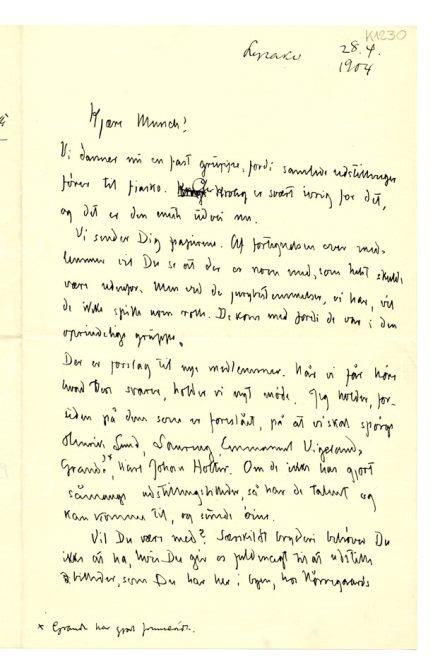 K1230
Lysaker 28.4.
1904
Kjære Munch!
Vi danner nu en fast gruppe, fordi samlede udstillinger
fører til fiasko. Krohg er svært ivrig for det,
og det er den eneste udvei nu.
Vi sender Dig papirene. Af fortegnelsen over med-
lemmer vil Du se at der er noen med, som helst skulde
være udenfor. Men ved de jurybestemmelser, vi har, vil
de ikke spille noen rolle. De kom med fordi de var i den
oprindelige gruppe.
Der er forslag til nye medlemmer. Når vi får høre
hvad Dere svarer, holder vi nyt møde. Jeg holder, for-
uden på dem som er foreslået, på at vi skal spørge
Henrik Lund, Emmanuel Vigeland,
Grande,* Hans Johan Holter. Om de ikke har gjort
så mange udstillingsbilleder, så har de talent og
kan komme til, og sunde øine.
Vil Du være med? Særskildt bryderi behøver Du
ikke at ha, hvis Du gir os fuldmagt til at udstille
billeder, som Du har her i byen, hos Nørregaards
* Grande har gode